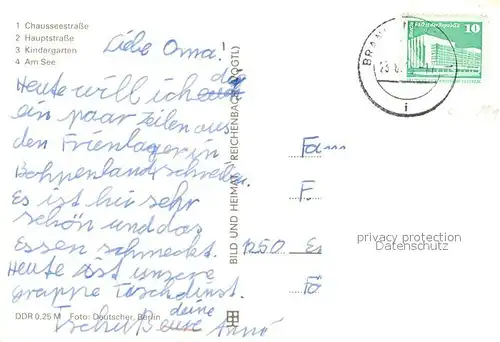 1 Chausseestraße
2 Hauptstraße
3 Kindergarten
4 Am See
Liebe Oma!
Heute will ich dir
ein paar Zeilen aus
den Frienlager in
schreiben.
Es ist hir sehr
schön und das
Essen schmeckt.
Heute ist unsere
grappe Tischdinst.
Tschüß deine
Anne
DDR 0,25 M Foto: Deutscher, Berlin
BILD UND HEIMAT REICHENBACH (VOGTL)
BRAN
10
Fam
F.
1250 Er
privacy protection
Datenschutz